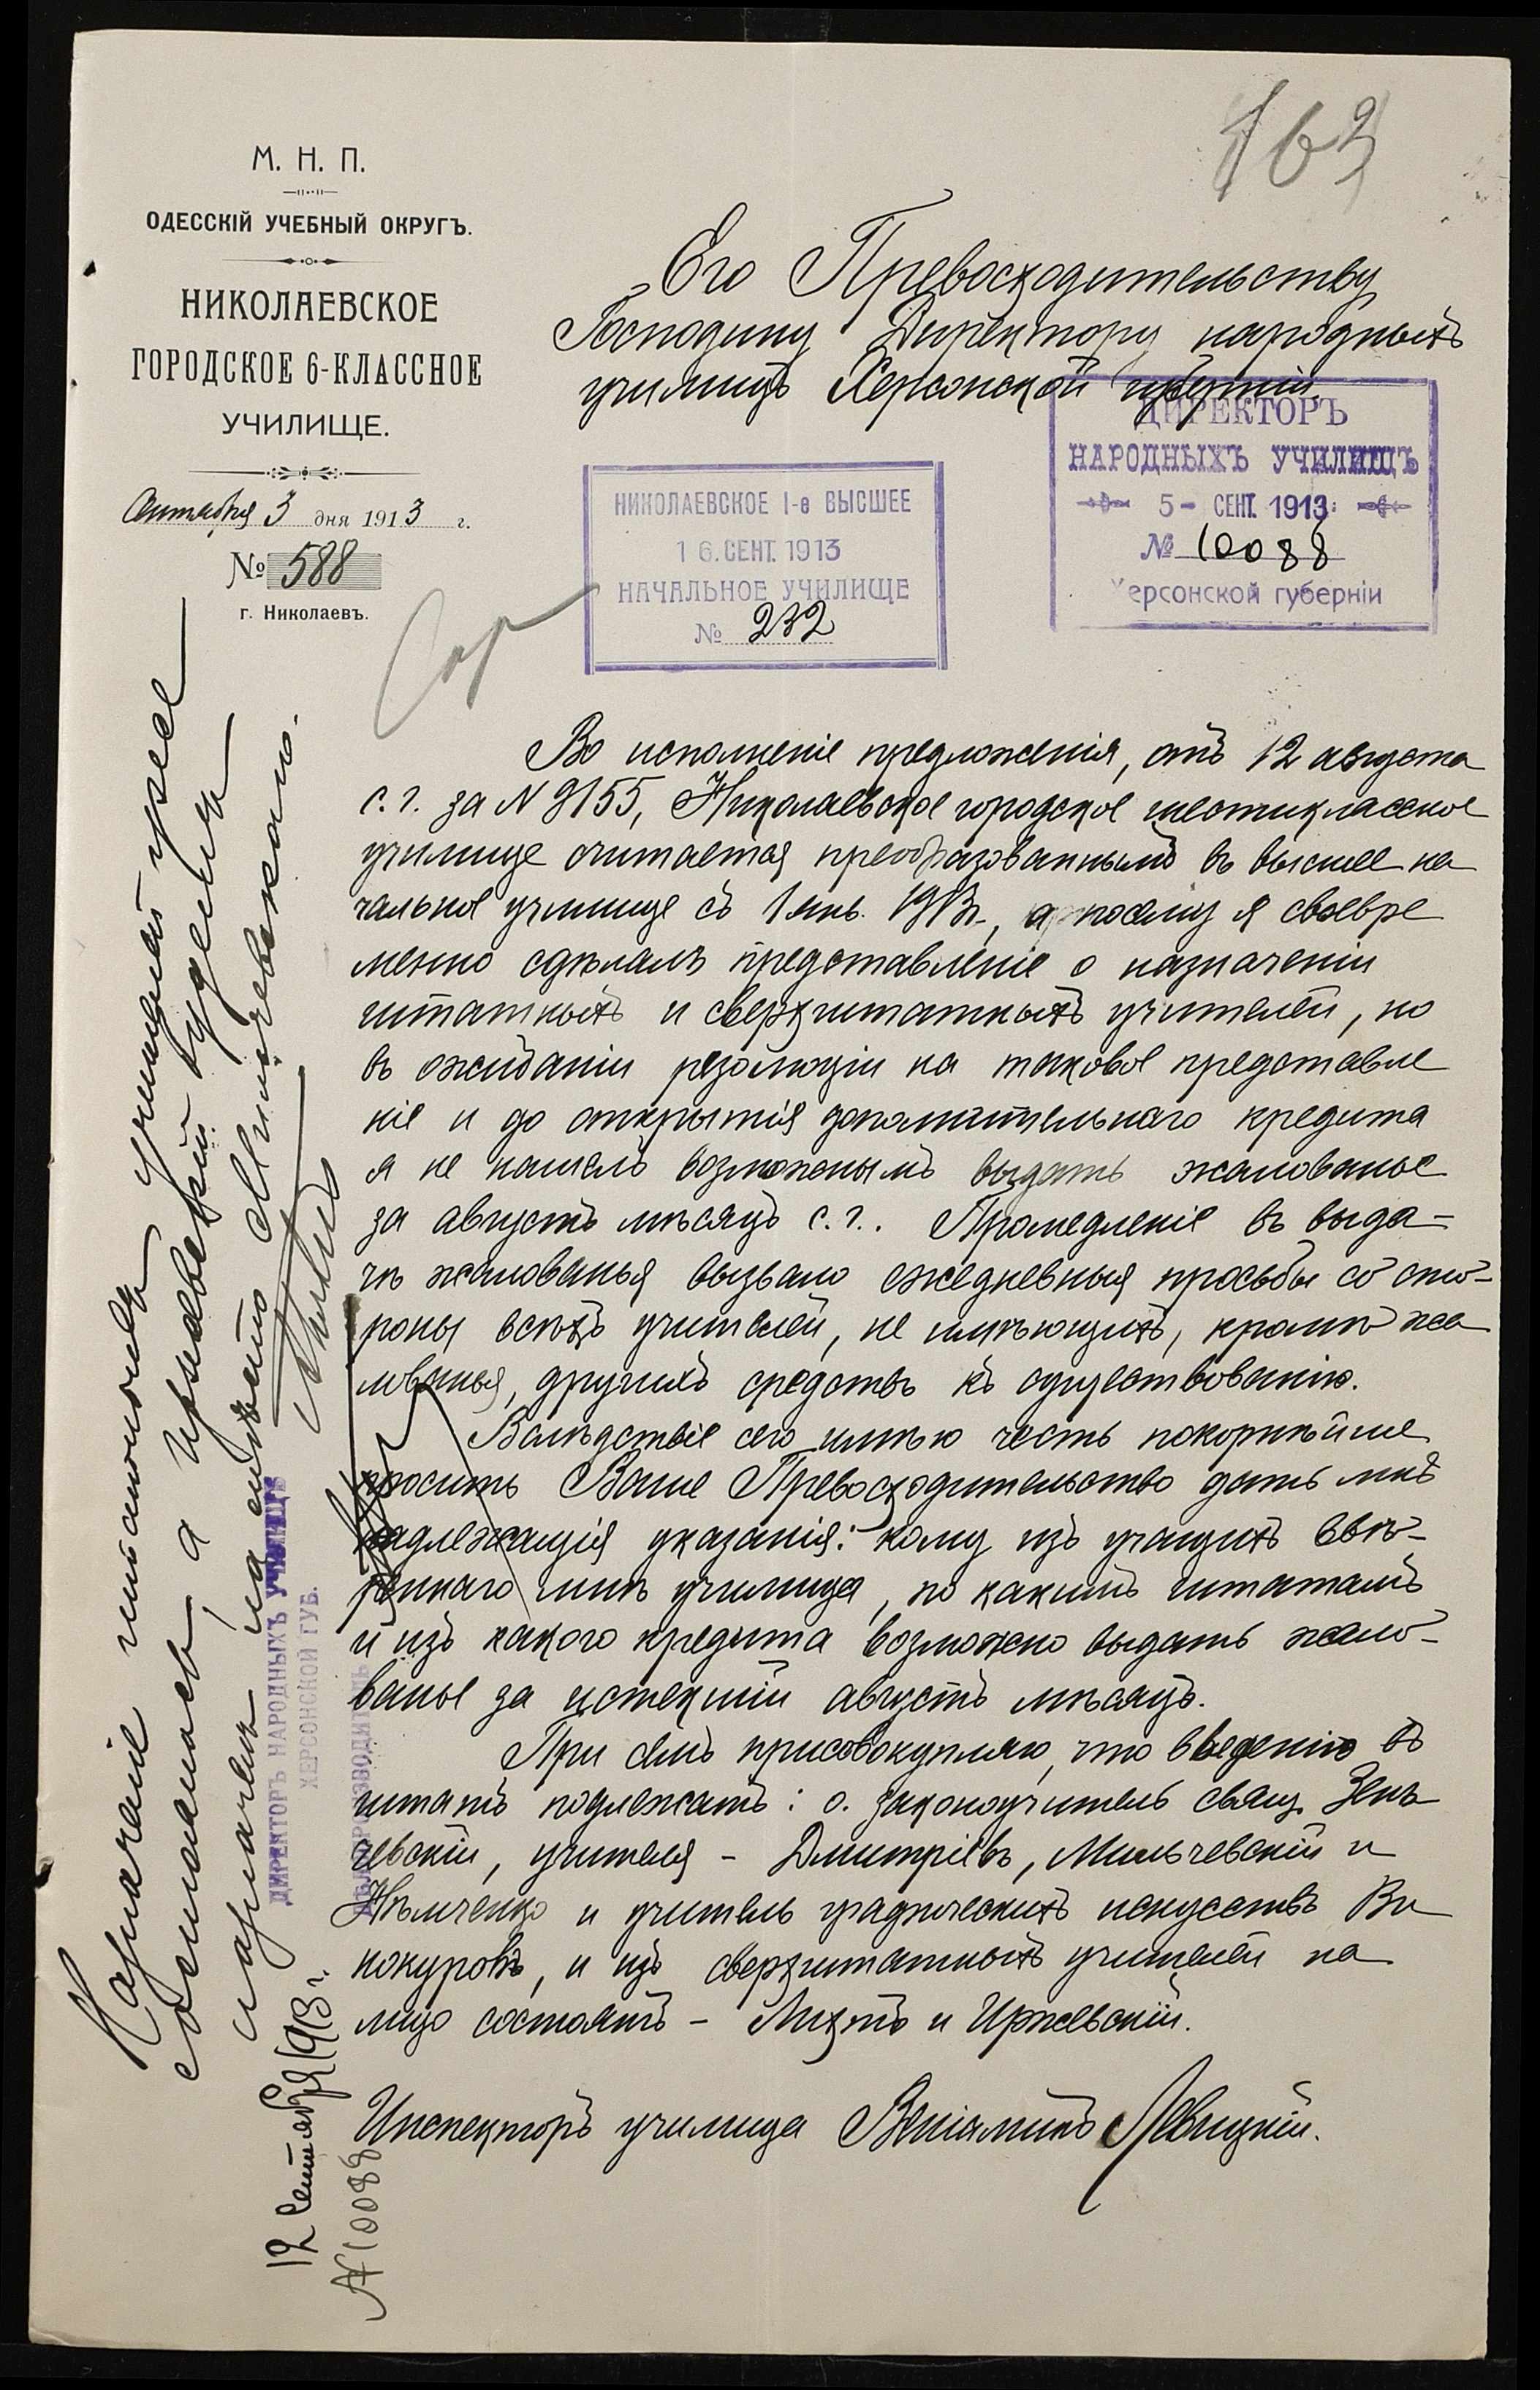 163
М. Н. П.
ОДЕССКІЙ УЧЕБНЫЙ ОКРУГЪ.
НИКОЛАЕВСКОЕ
ГОРОДСКОЕ 6-КЛАССНОЕ
УЧИЛИЩЕ.
Сентября 3 дня 1913 г.
№ 588
г. Николаевъ.
Его Превосходительству
Господину Директору народныхъ
училищъ Херсонской губерніи.
НИКОЛАЕВСКОЕ 1-е ВЫСШЕЕ
16. СЕНТ. 1913
НАЧАЛЬНОЕ УЧИЛИЩЕ
№ 232
ДИРЕКТОРЪ
НАРОДНЫХЪ УЧИЛИЩЪ
5 - СЕНТ. 1913
№ 10088
Херсонской губерніи
Во исполненіе предложенія, отъ 12 августа
с. г. за N 9155, Николаевское городское шестиклассное
училище считается преобразованнымъ въ высшее на
чальное училище съ 1 янв. 1913, а посему я своевре
менно сдѣлалъ представленіе о назначеніи
штатныхъ и сверхштатныхъ учителей, но
въ ожиданіи резолюціи на таковое представле
ніе и до открытія дополнительнаго кредита
я не нашелъ возможнымъ выдать жалованье
за августъ мѣсяцъ с. г.. Промедленіе въ выда-
чѣ жалованья вызвало ежедневныя просьбы со сто-
роны всѣхъ учителей, не имѣющихъ, кромѣ жа
лованья, другихъ средствъ къ существованію.
Вслѣдствіе сего имѣю честь покорнѣйше
просить Ваше Превосходительство дать мнѣ
надлежащія указанія: кому изъ учащихъ ввѣ-
реннаго мнѣ училища, по какимъ штатамъ
и изъ какого кредита возможно выдать жало-
ванье за истекшій августъ мѣсяцъ.
При семъ присовокупляю, что введенію въ
штатъ подлежатъ: о. законоучитель свящ. Зень
чевскій, учителя - Дмитріевъ, Мильчевскій и
Нѣмченко и учитель графическихъ искусствъ Ви
нокуровъ, и изъ сверхштатныхъ учителей на
лицо состоятъ - Лихтъ и Иржевскій.
Инспекторъ училища Веніаминъ Левицкій.
Назначеніе штатнымъ учителей уже
состоялось, а Иржевскій будетъ
назначенъ на мѣсто Мильчевскаго.
ДИРЕКТОРЪ НАРОДНЫХЪ УЧИЛИЩЪ
ХЕРСОНСКОЙ ГУБ.
ДѢЛОПРОИЗВОДИТЕЛЬ
12 Сентября 1913 г.
N 10088